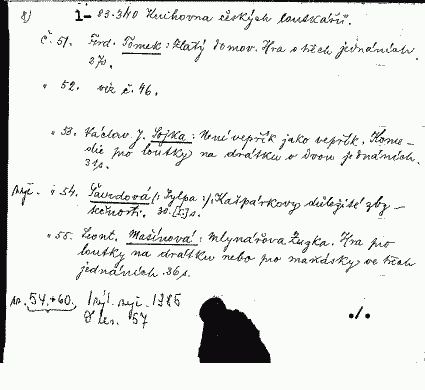 8) 1- 83.340 Knihovna českých loutkářů.
č. 51. Ferd. Tomek: Zlatý domov. Hra o třech jednáních.
27s.
" 52. viz č. 46.
" 53. Václav J. Sojka: Není vepřík jako vepřík. Kome-
die pro loutky na drátku o dvou jednáních.
31s.
" 54. Šavrdová (: Sylpa :). Kašpárkovy důležité zby-
tečnosti. 30.[I]s.
" 55. Leont. Mašínová: Mlynářova Zuzka. Hra pro
loutky na drátku nebo pro maňásky ve třech
jednáních. 36s.
54.+60. 1925
57
./.